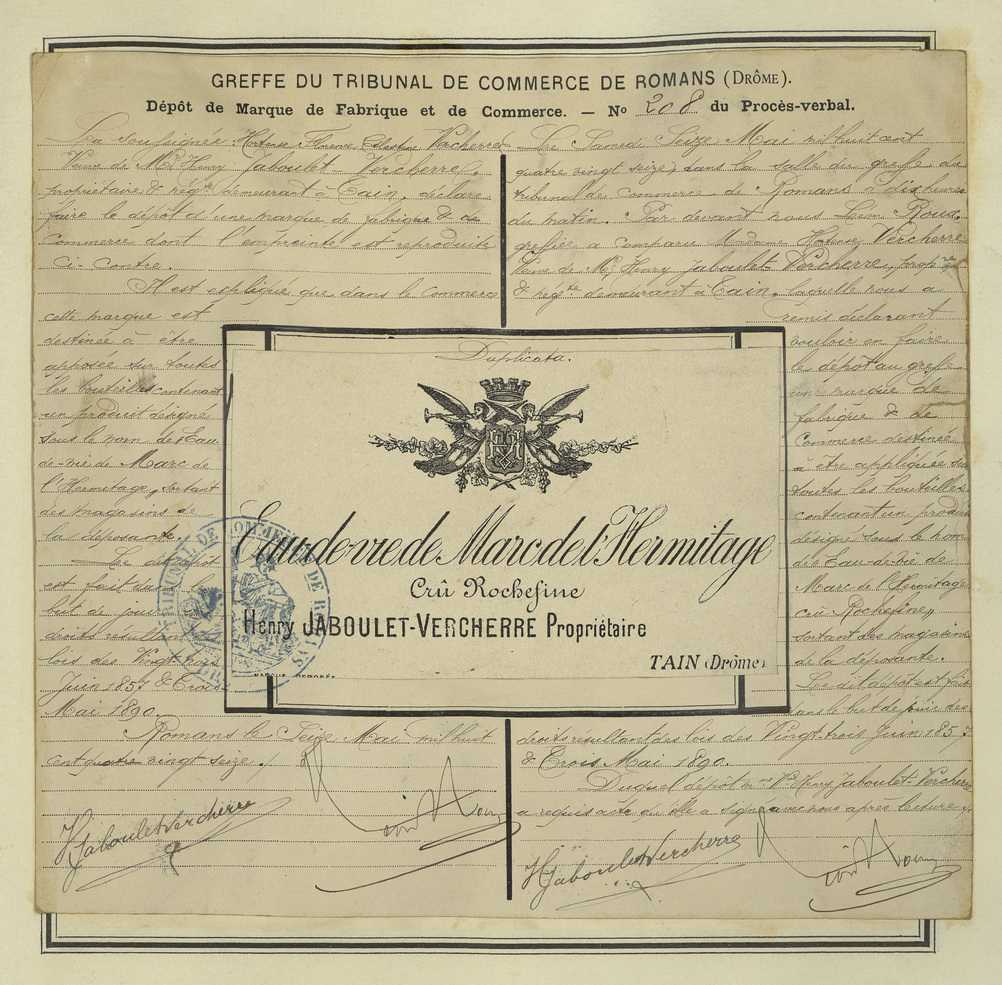 GREFFE DU TRIBUNAL DE COMMERCE DE ROMANS (DRÔME).
Dépôt de Marque de Fabrique et de Commerce. — No 208 du Procès-verbal.
La soussignée Hortense Florence Celestine Vacherres
Veuve de Mr Henry Jaboulet-Vercherre,
propriétaire & négte demeurant à Tain, déclare
faire le dépôt d'une marque de fabrique & de
commerce dont l'empreinte est reproduite
ci-contre.
Il est expliqué que dans le commerce
cette marque est
destinée à être
apposée sur toutes
les bouteilles contenant
un produit désigné
sous le nom de Eau
de-vie de Marc de
l'Hermitage, sortant
des magasins de
la déposante.
Le dépôt
est fait dans le
but de jouir
droits résultant
lois des Vingt trois
Juin 1857 & Trois
Mai 1890.
Romans le Seize Mai mil huit
cent quatre vingt seize ./.
HJaboulet Vercherre
Le Samedi Seize Mai mil huit cent
quatre vingt seize, dans la salle du greffe du
tribunal de commerce de Romans à dix heures
du matin. Par devant nous Léon Roux,
greffier, a comparu Madame Vercherre
Veuve de Mr Henry Jaboulet Vercherre, propre
& négte demeurant à Tain, laquelle nous a
remis déclarant
vouloir en faire
le dépôt au greffe
une marque de
fabrique & de
commerce destinée
à être appliquée sur
toutes les bouteilles
contenant un produit
désigné sous le nom
de Eau-de-vie de
Marc de l'Hermitage
crû Rochefine,,
sortant des magasins
de la déposante.
Le dit dépôt est fait
dans le but de jouir des
droits résultant des lois des Vingt-trois Juin 1857
& Trois Mai 1890.
Duquel dépôt Mme Ve Henry Jaboulet-Vercherre
a requis acte qu'elle a signé avec nous après lecture ./.
HJaboulet Vercherre
Duplicata.
Eau-de-vie de Marc de l'Hermitage
Crû Rochefine
Henry JABOULET-VERCHERRE Propriétaire
TAIN (Drôme)
MARQUE DÉPOSÉE
TRIBUNAL DE COMMERCE DE ROMANS